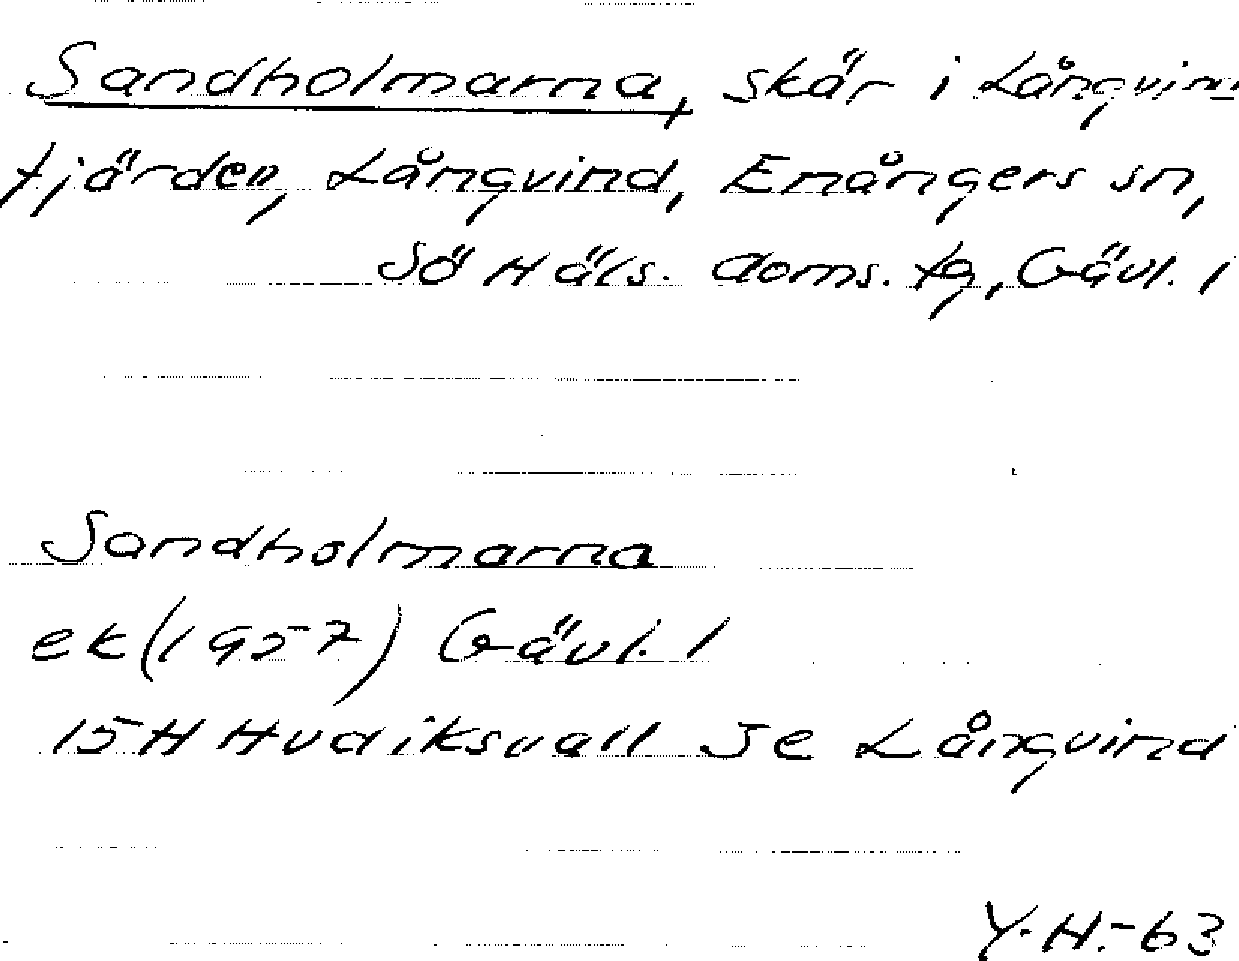 Sandholmarna, skär i Långvin
fjärden, Långvind, Enångers sn,
Sö Häls. doms. tg, Gävl. l
Sandholmarna
ek (1957) Gävl. l
15H Hudiksvall Je Långvind
Y.H.-63